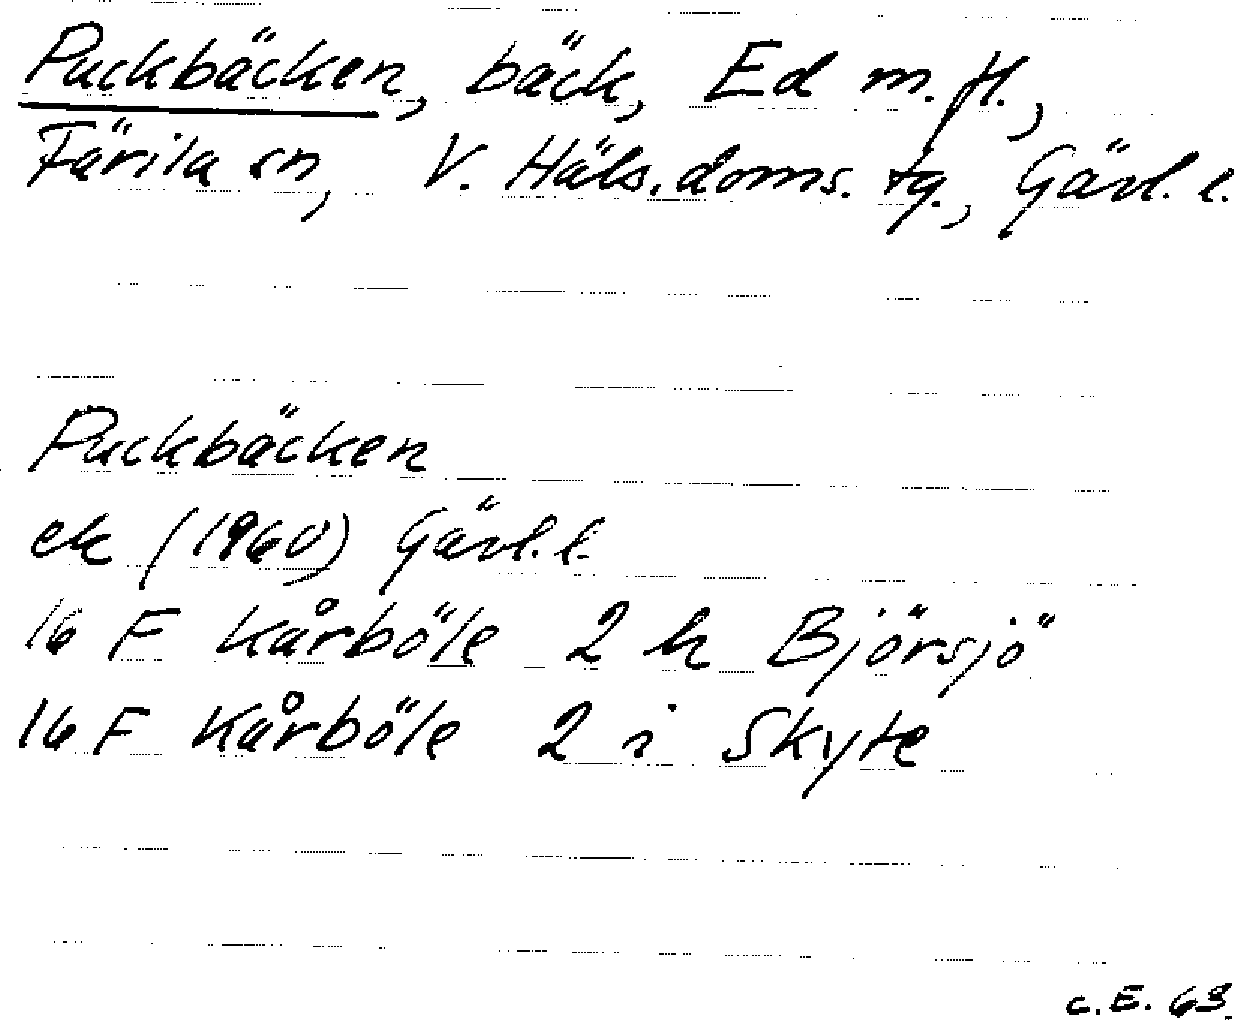 Puckbäcken, bäck, Ed m. fl.,
Färila sn, V. Häls. doms. tg., Gävl. l.
Puckbäcken
ek (1960) Gävl. l.
16 F Kårböle 2 h Björsjö
16 F Kårböle 2 i Skyte
C. E. 63.